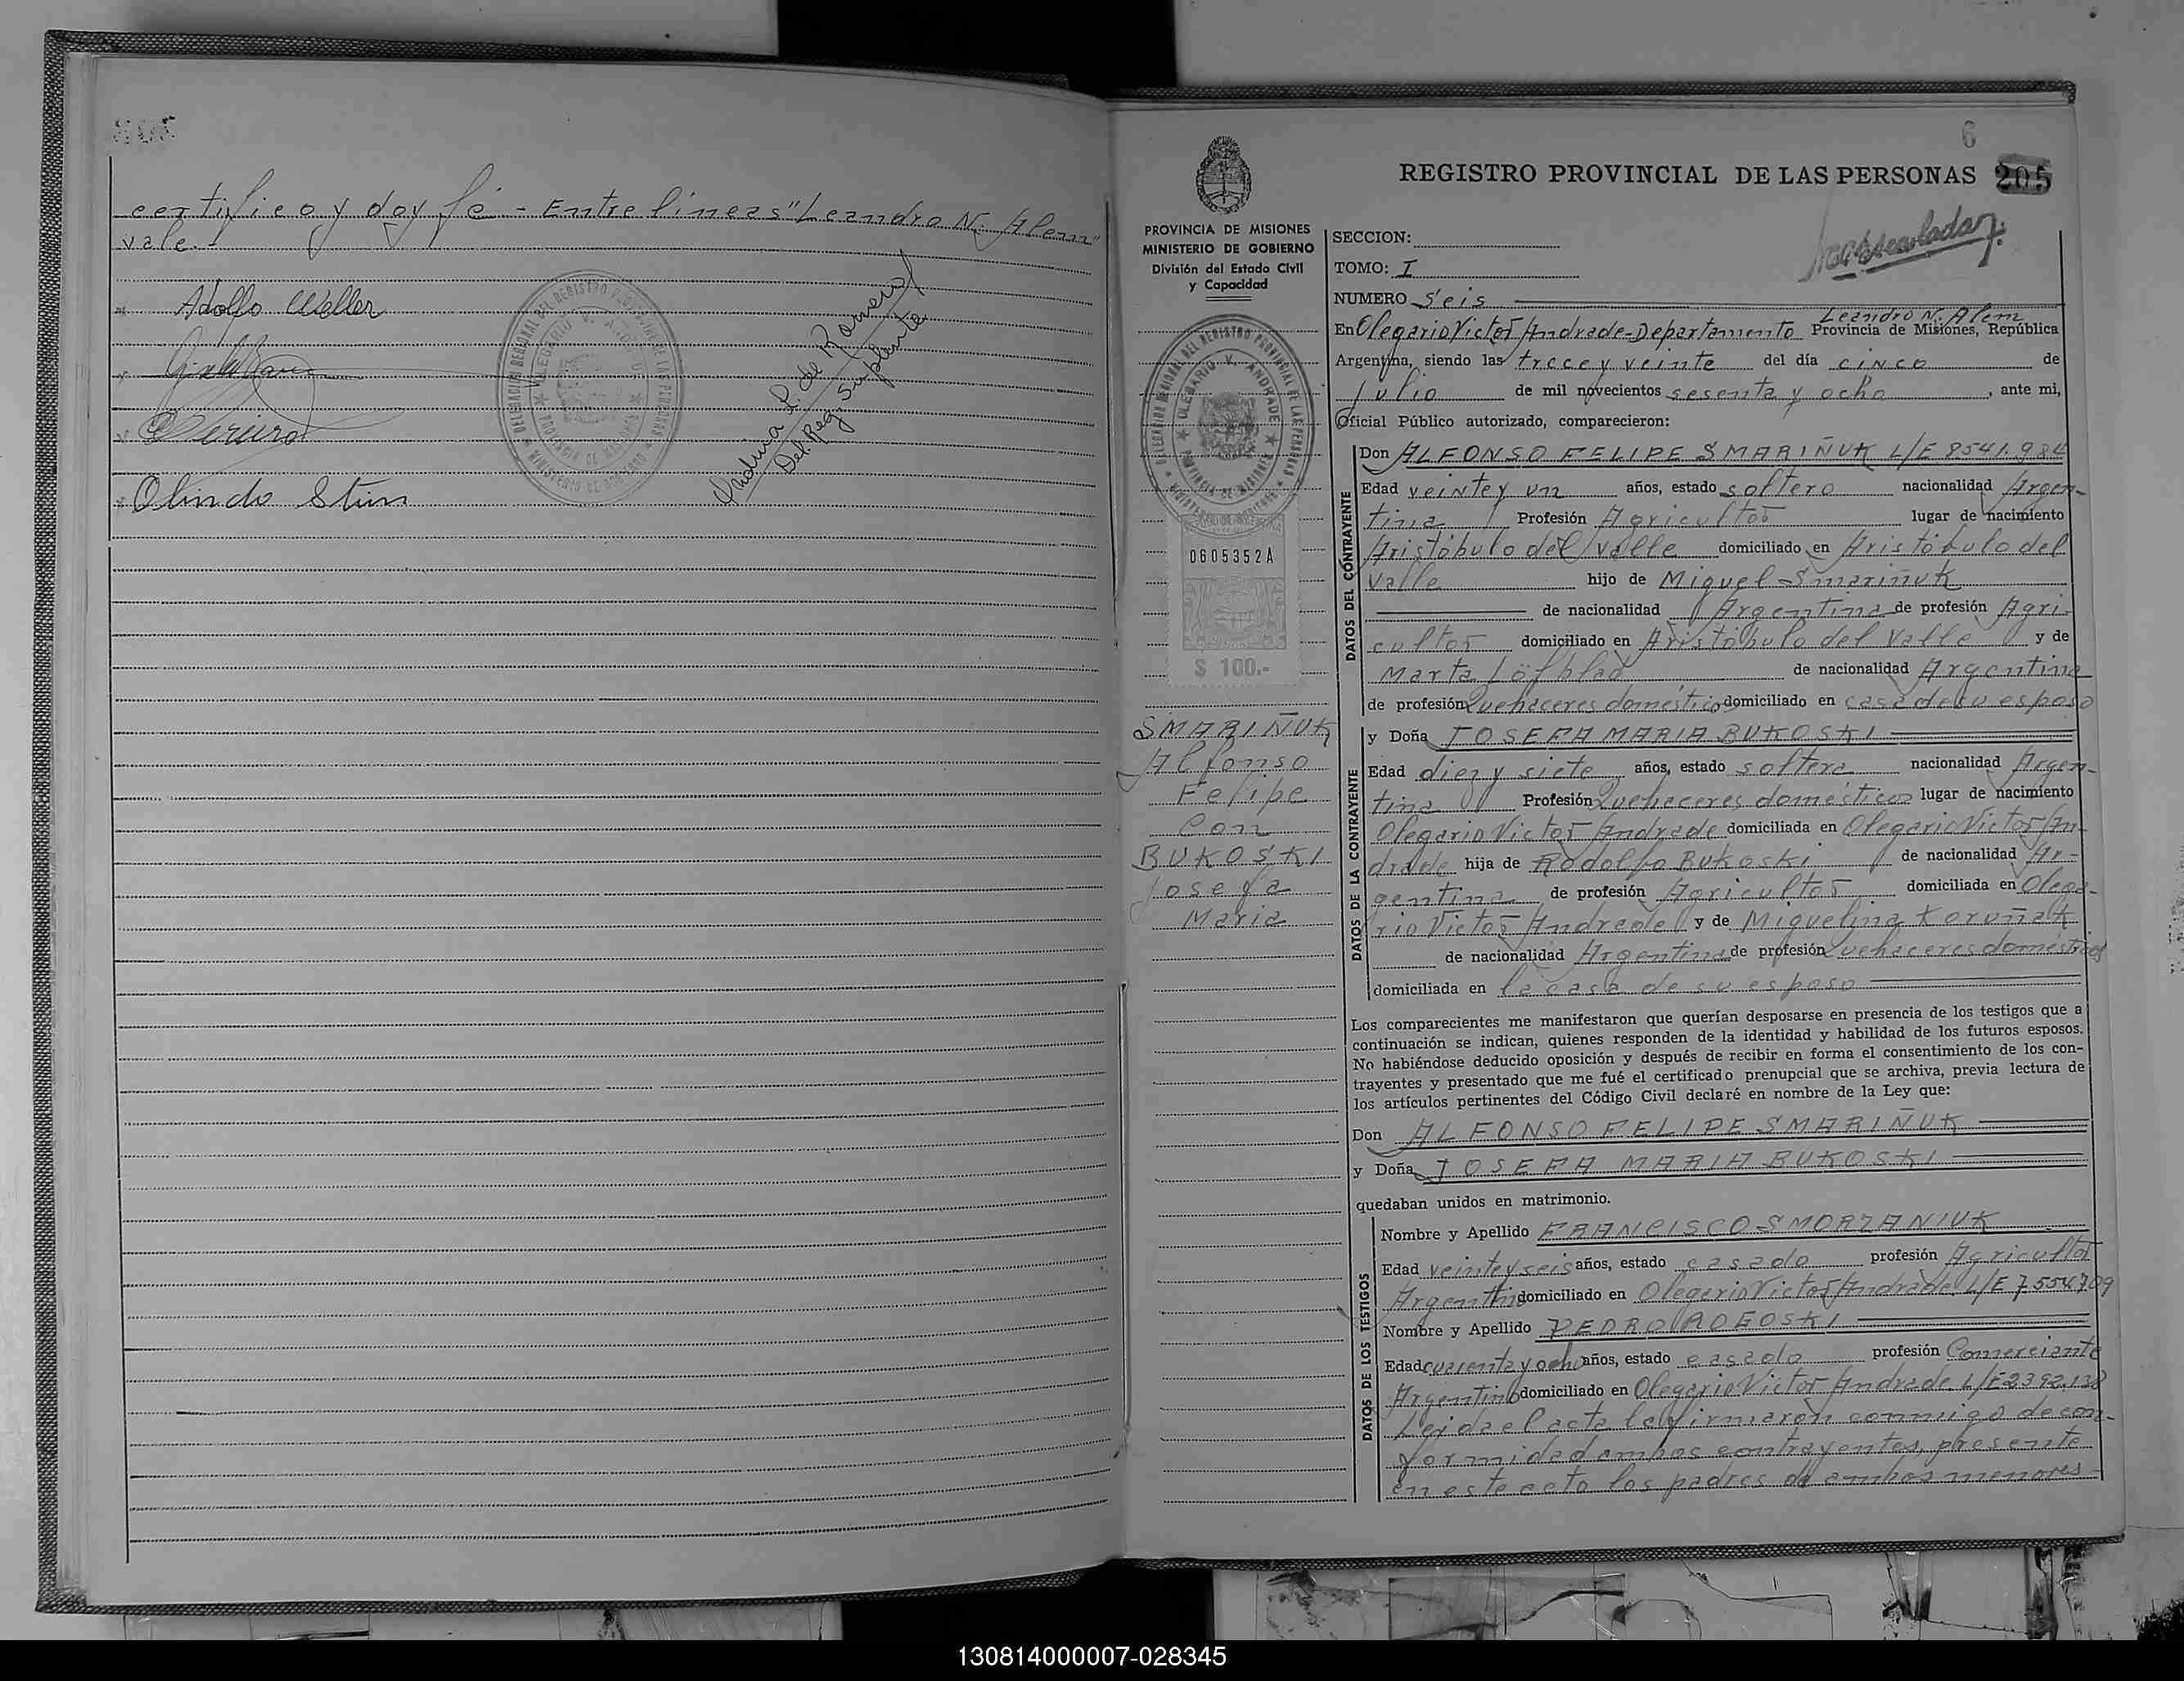 certifico y doy fé - Entre líneas "Leandro N. Alem"
vale.-
Adolfo Weller
Olindo Stein
DELEGACION REGIONAL DEL REGISTRO PROVINCIAL DE LAS PERSONAS
L. de Romero
Del. Reg. Suplente
6
REGISTRO PROVINCIAL DE LAS PERSONAS 205
PROVINCIA DE MISIONES
MINISTERIO DE GOBIERNO
División del Estado Civil
y Capacidad
DELEGACION REGIONAL DEL REGISTRO PROVINCIAL DE LAS PERSONAS
OLEGARIO V. ANDRADE
PROVINCIA DE MISIONES
0605352A
$ 100.-
SMARIÑUK
Alfonso
Felipe
Con
BUKOSKI
Josefa
Maria
SECCION:
TOMO: I
NUMERO Seis
Leandro N. Alem
En Olegario Victor Andrade-Departamento Provincia de Misiones, República
Argentina, siendo las trece y veinte del día cinco de
Julio de mil novecientos sesenta y ocho, ante mi,
Oficial Público autorizado, comparecieron:
DATOS DEL CONTRAYENTE
Don ALFONSO FELIPE SMARIÑUK L/E 8541.984
Edad veinte y un años, estado soltero nacionalidad Argen-
tina Profesión Agricultor lugar de nacimiento
Aristóbulo del Valle domiciliado en Aristóbulo del
Valle hijo de Miguel Smariñuk
de nacionalidad Argentina de profesión Agri-
cultor domiciliado en Aristóbulo del Valle y de
Marta Löfblad de nacionalidad Argentina
de profesión Quehaceres domésticos domiciliado en casa de su esposo
DATOS DE LA CONTRAYENTE
y Doña JOSEFA MARIA BUKOSKI
Edad diez y siete años, estado soltera nacionalidad Argen-
tina Profesión Quehaceres domésticos lugar de nacimiento
Olegario Victor Andrade domiciliada en Olegario Victor An-
drade hija de Rodolfo Bukoski de nacionalidad Ar-
gentina de profesión Agricultor domiciliada en Olega-
rio Victor Andrade y de Miguelina Koruñak
de nacionalidad Argentina de profesión Quehaceres domésticos
domiciliada en la casa de su esposo
Los comparecientes me manifestaron que querían desposarse en presencia de los testigos que a
continuación se indican, quienes responden de la identidad y habilidad de los futuros esposos.
No habiéndose deducido oposición y después de recibir en forma el consentimiento de los con-
trayentes y presentado que me fué el certificado prenupcial que se archiva, previa lectura de
los artículos pertinentes del Código Civil declaré en nombre de la Ley que:
Don ALFONSO FELIPE SMARIÑUK
y Doña JOSEFA MARIA BUKOSKI
quedaban unidos en matrimonio.
DATOS DE LOS TESTIGOS
Nombre y Apellido FRANCISCO SMORZANIUK
Edad veinte y seis años, estado casado profesión Agricultor
Argentino domiciliado en Olegario Victor Andrade L/E 7.554.709
Nombre y Apellido PEDRO ROGOSKI
Edad cuarenta y ocho años, estado casado profesión Comerciante
Argentino domiciliado en Olegario Victor Andrade. L/E 2392.138
Leida el acta la firmaron conmigo de con-
formidad ambos contrayentes, presente
en este acto los padres de ambos menores
130814000007-028345